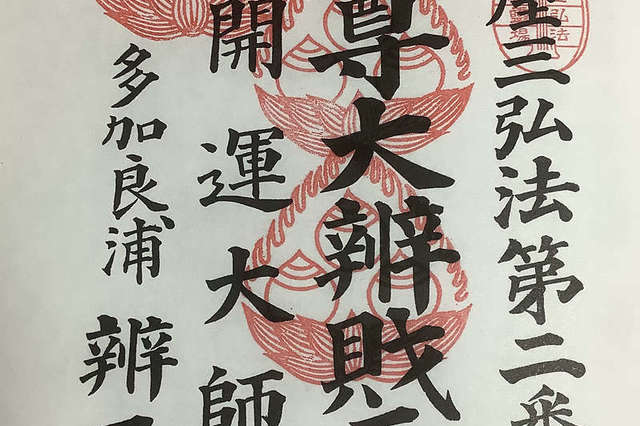 三弘法第二番
尊大辨財
開運大師
多加良浦
辨